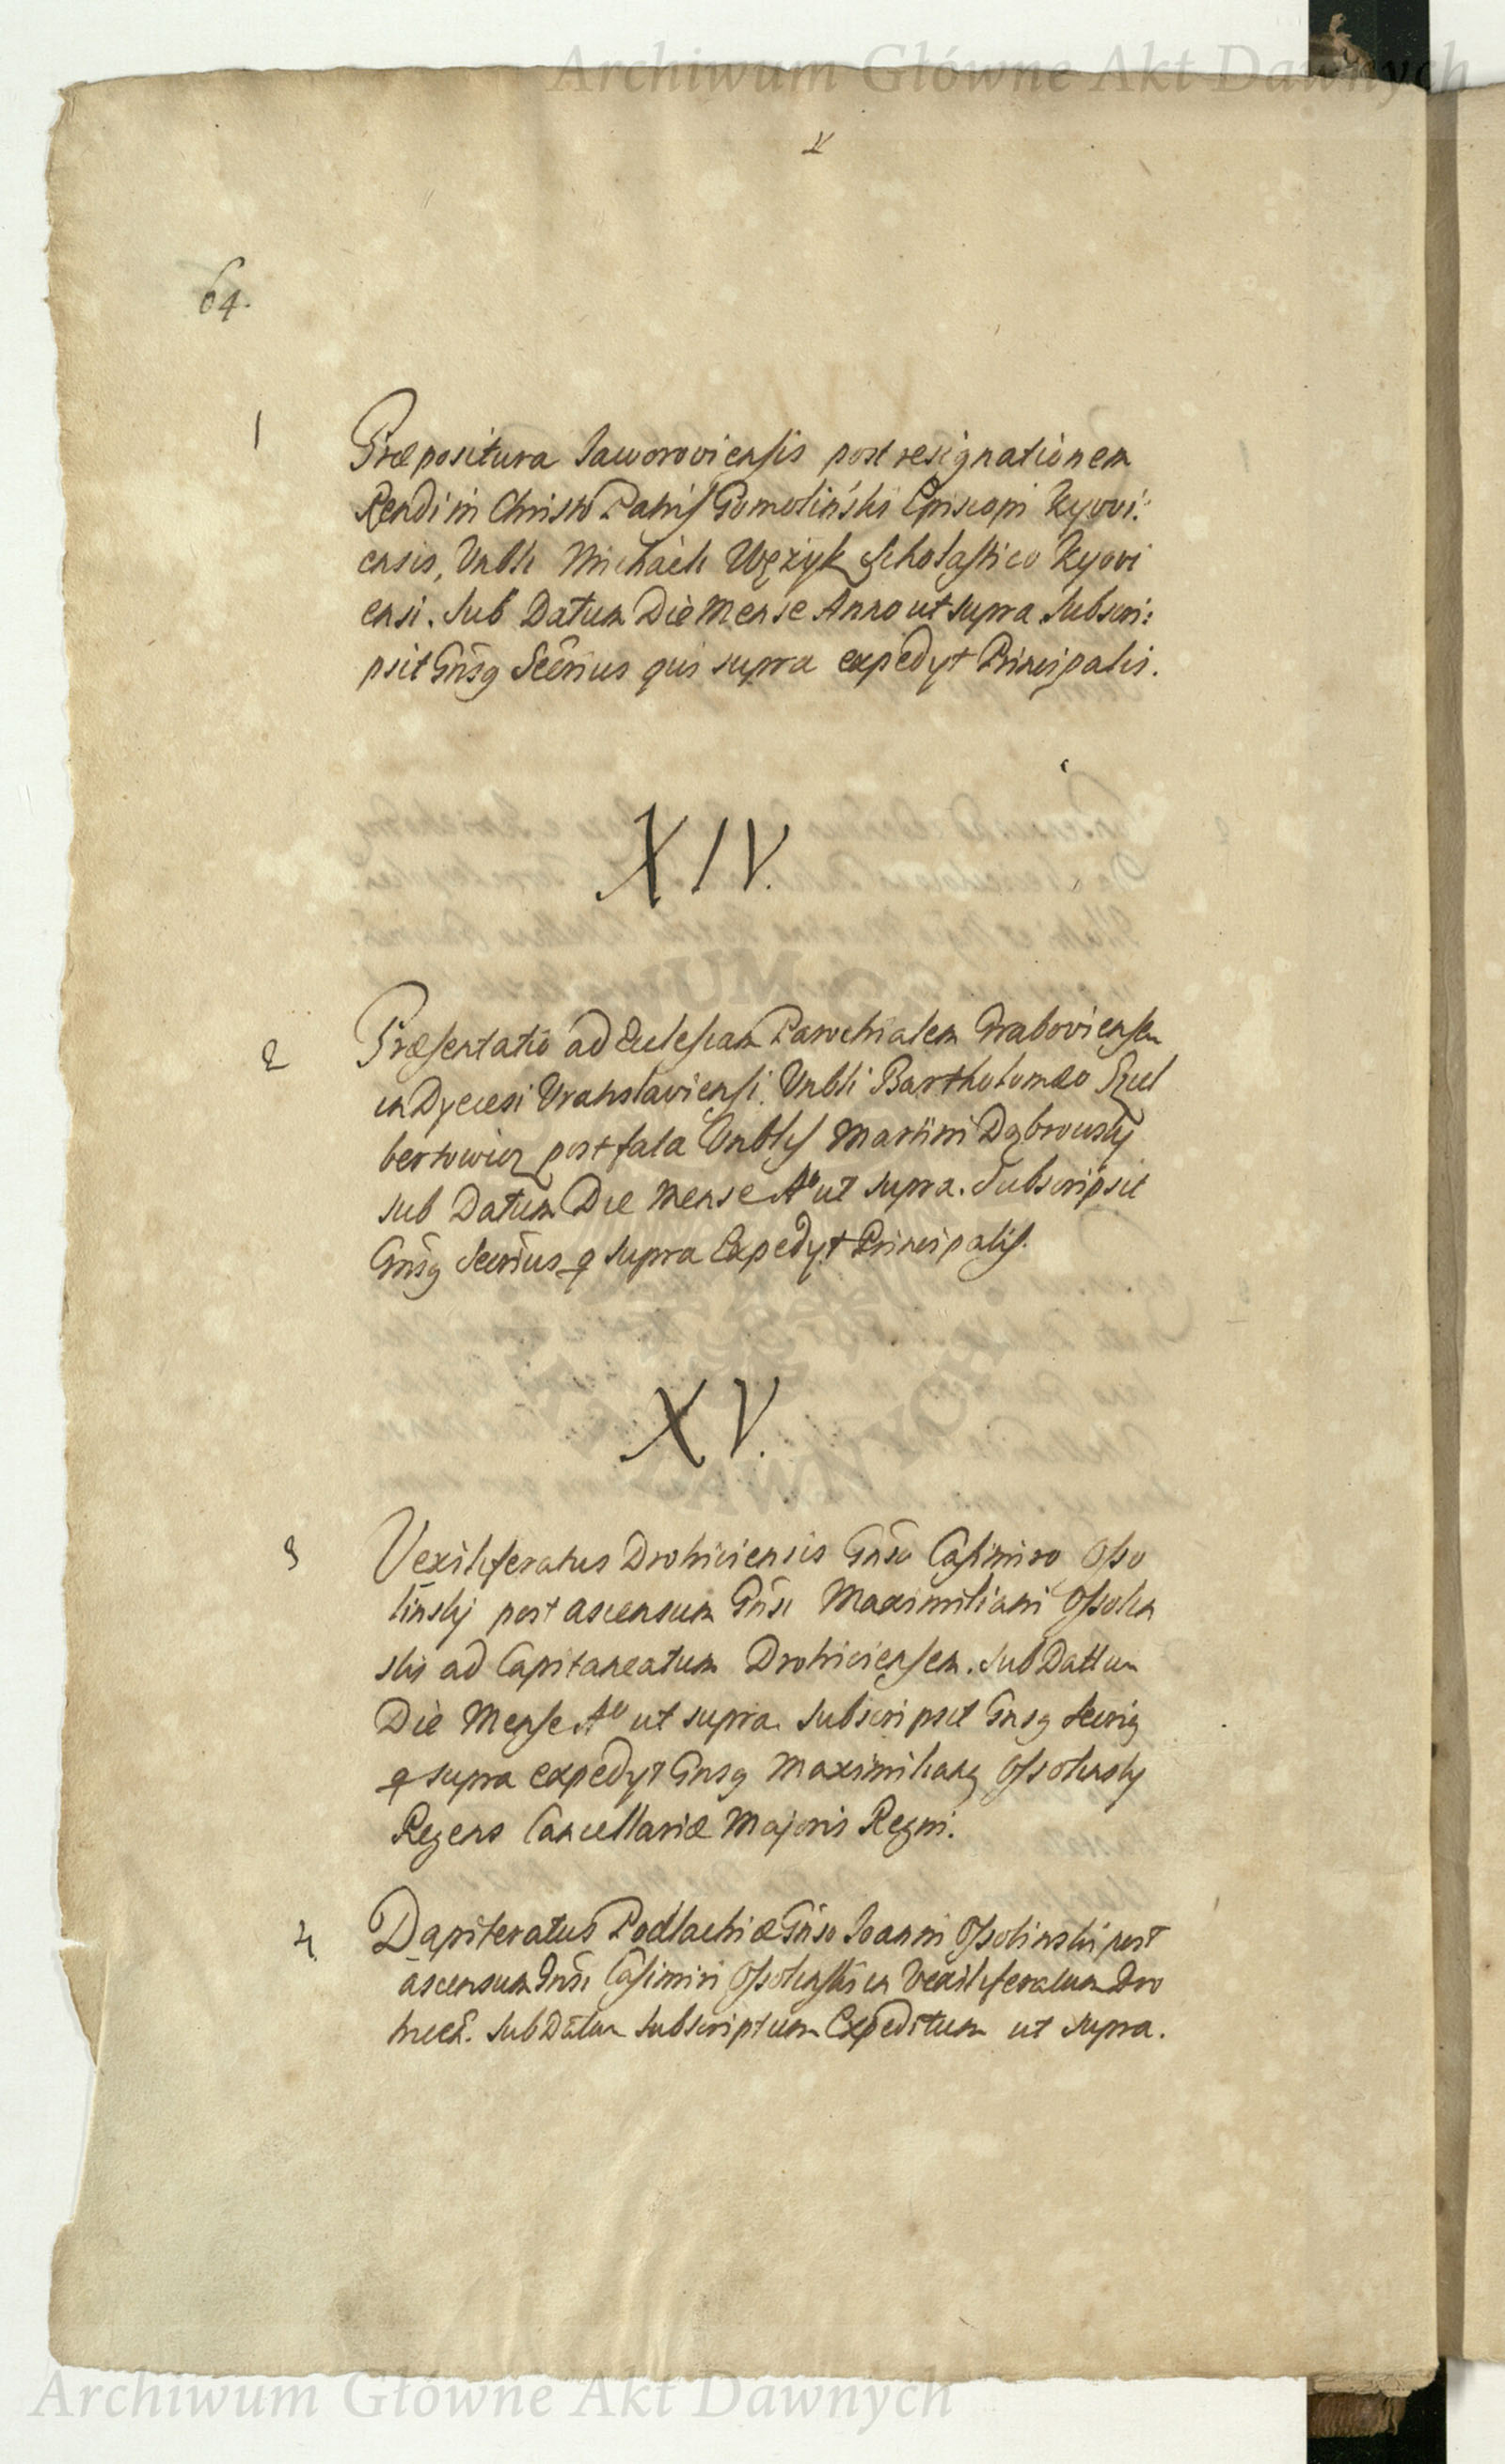 Archiwum Główne Akt Dawnych
64.
1
Præpositura Jaworoviensis post resignationem
Rendi in Christo Patris Gomoliński Episcopi Kyovi:
ensis, Vnbli Michaeli Wężyk Scholastico Kyovi
ensi. Sub Datum Die Mense Anno ut supra. Subscri:
psit Gnsg Secrius qui supra expedyt Principalis.
XIV.
2
Præsentatio ad Eclesiam Parochialem Graboviensem
in Dyecesi Vratislaviensi. Vnbli Bartholomæo
post fata Vnblis Martini Dąbrowsky
sub Datum Die Mense Ao ut supra. Subscripsit
Gnsg Secrius q supra Expedyt Principalis.
XV.
3
Vexiliferatus Drohiciensis Gnso Casimiro Osso
linsky post ascensum Gnsi Maximiliani Ossolin
ski ad Capitaneatum Drohiciensem. Sub Dattum
Die Mense Ao ut supra. Subscripsit Gnsg Secrig
q supra expedyt Gnsg Maximiliang Ossolinsky
Regens Cancellariæ Majoris Regni.
4
Dapiferatus Podlachiæ Gnso Joanni Ossolinski post
ascensum Gnsi Casimiri Ossolinski in Vexiliferatum Dro
hicen. Sub Datum subscriptum Expeditum ut supra.
Archiwum Główne Akt Dawnych